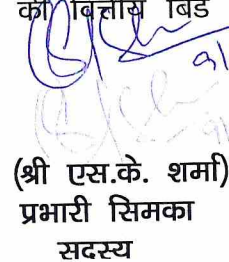 की वित्तीय बिड
(श्री एस.के. शर्मा)
प्रभारी सिमका
सदस्य